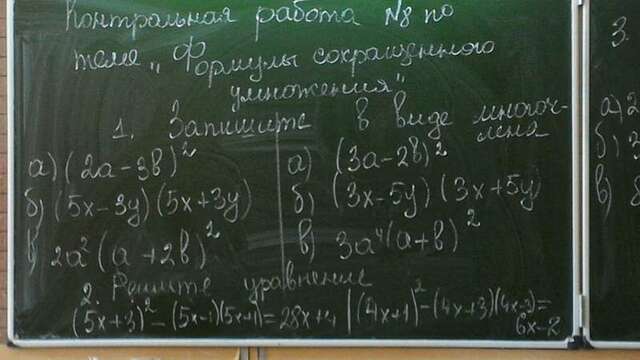 Контрольная работа №8 по
теме „Формулы сокращенного
умножения"
1. Запишите в виде многоч-
лена
а) (2a-3b)² а) (3a-2b)²
б) (5x-3y)(5x+3y) б) (3x-5y)(3x+5y)
в) 2a²(a+2b)² в) 3a⁴(a+b)²
2. Решите уравнение
(5x+3)²-(5x-1)(5x+1)=28x+4 | (4x+1)²-(4x+3)(4x-3)=
6x-2
3.
а)
б) 3
в)